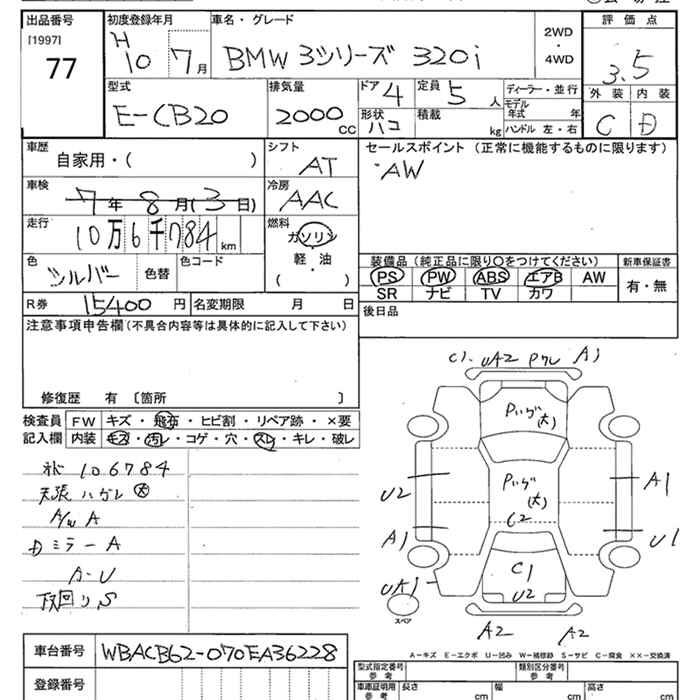 出品番号 初度登録年月 車名・グレード 2WD 評価点
[1997] H 10 7月 BMW 3シリーズ 320i ・ 3.5
77 4WD
型式 排気量 ドア 4 定員 5 人 ディーラー・並行 外装 内装
E-CB20 2000 CC 形状 ハコ 積載 kg モデル年式 年 C D
ハンドル 左・右
車歴 シフト セールスポイント (正常に機能するものに限ります)
自家用・( ) AT ・AW
車検 7年 8月 (3日) 冷房 AAC
走行 10万6千784 km 燃料 ガソリン
軽・油
( ・ )
色 シルバー 色替 色コード 装備品 (純正品に限り〇をつけてください) 新車保証書
PS PW ABS エアB AW 有・無
SR ナビ TV カワ
R券 15400 円 名変期限 月 日 後日品
注意事項申告欄 (不具合内容等は具体的に記入して下さい)
修復歴 有 〔箇所 〕
検査員 FW キズ・飛石・ヒビ割・リペア跡・×要
記入欄 内装 キズ・汚レ・コゲ・穴・スレ・キレ・破レ
106784
天張ハガレ 大
A/W A
Dミラー A
A-U
下回り、S
C1 UA2 Pクレ A1
(大)
(大)
C2
U2
A1
A1
U1
UA1
C1
U2
スペア
A2
A2
A-キズ E-エクボ U-凹み W-補修跡 S-サビ C-腐食 ××-交換済
車台番号 WBACB62-070EA36228
型式指定番号 参考 類別区分番号 参考
登録番号 車庫証明用 参考 長さ cm 幅 cm 高さ cm